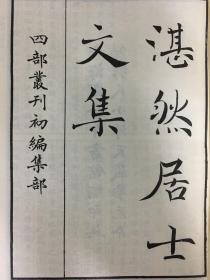 湛然居士
文集
四部叢刊初編集部